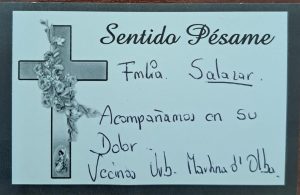 Sentido Pésame
Fmlia. Salazar.
Acompañamos en su
Dolor.
Vecinos Urb. Martina d' Olba.